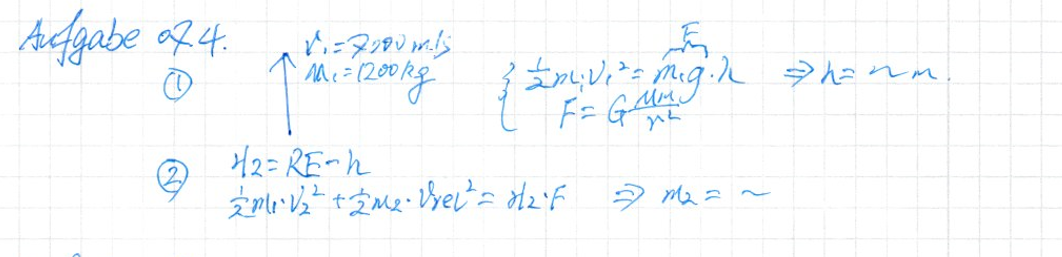 Aufgabe 07.4.
① V₁ = 7000 m/s
m₁ = 1200 kg
{ ½ m₁V₁² = m₁g·h ⇒ h = ~ m.
F
F = G Mm/r²
② H2 = RE - h
½m₁·V₂² + ½m₂·Vrel² = H2·F ⇒ m₂ = ~